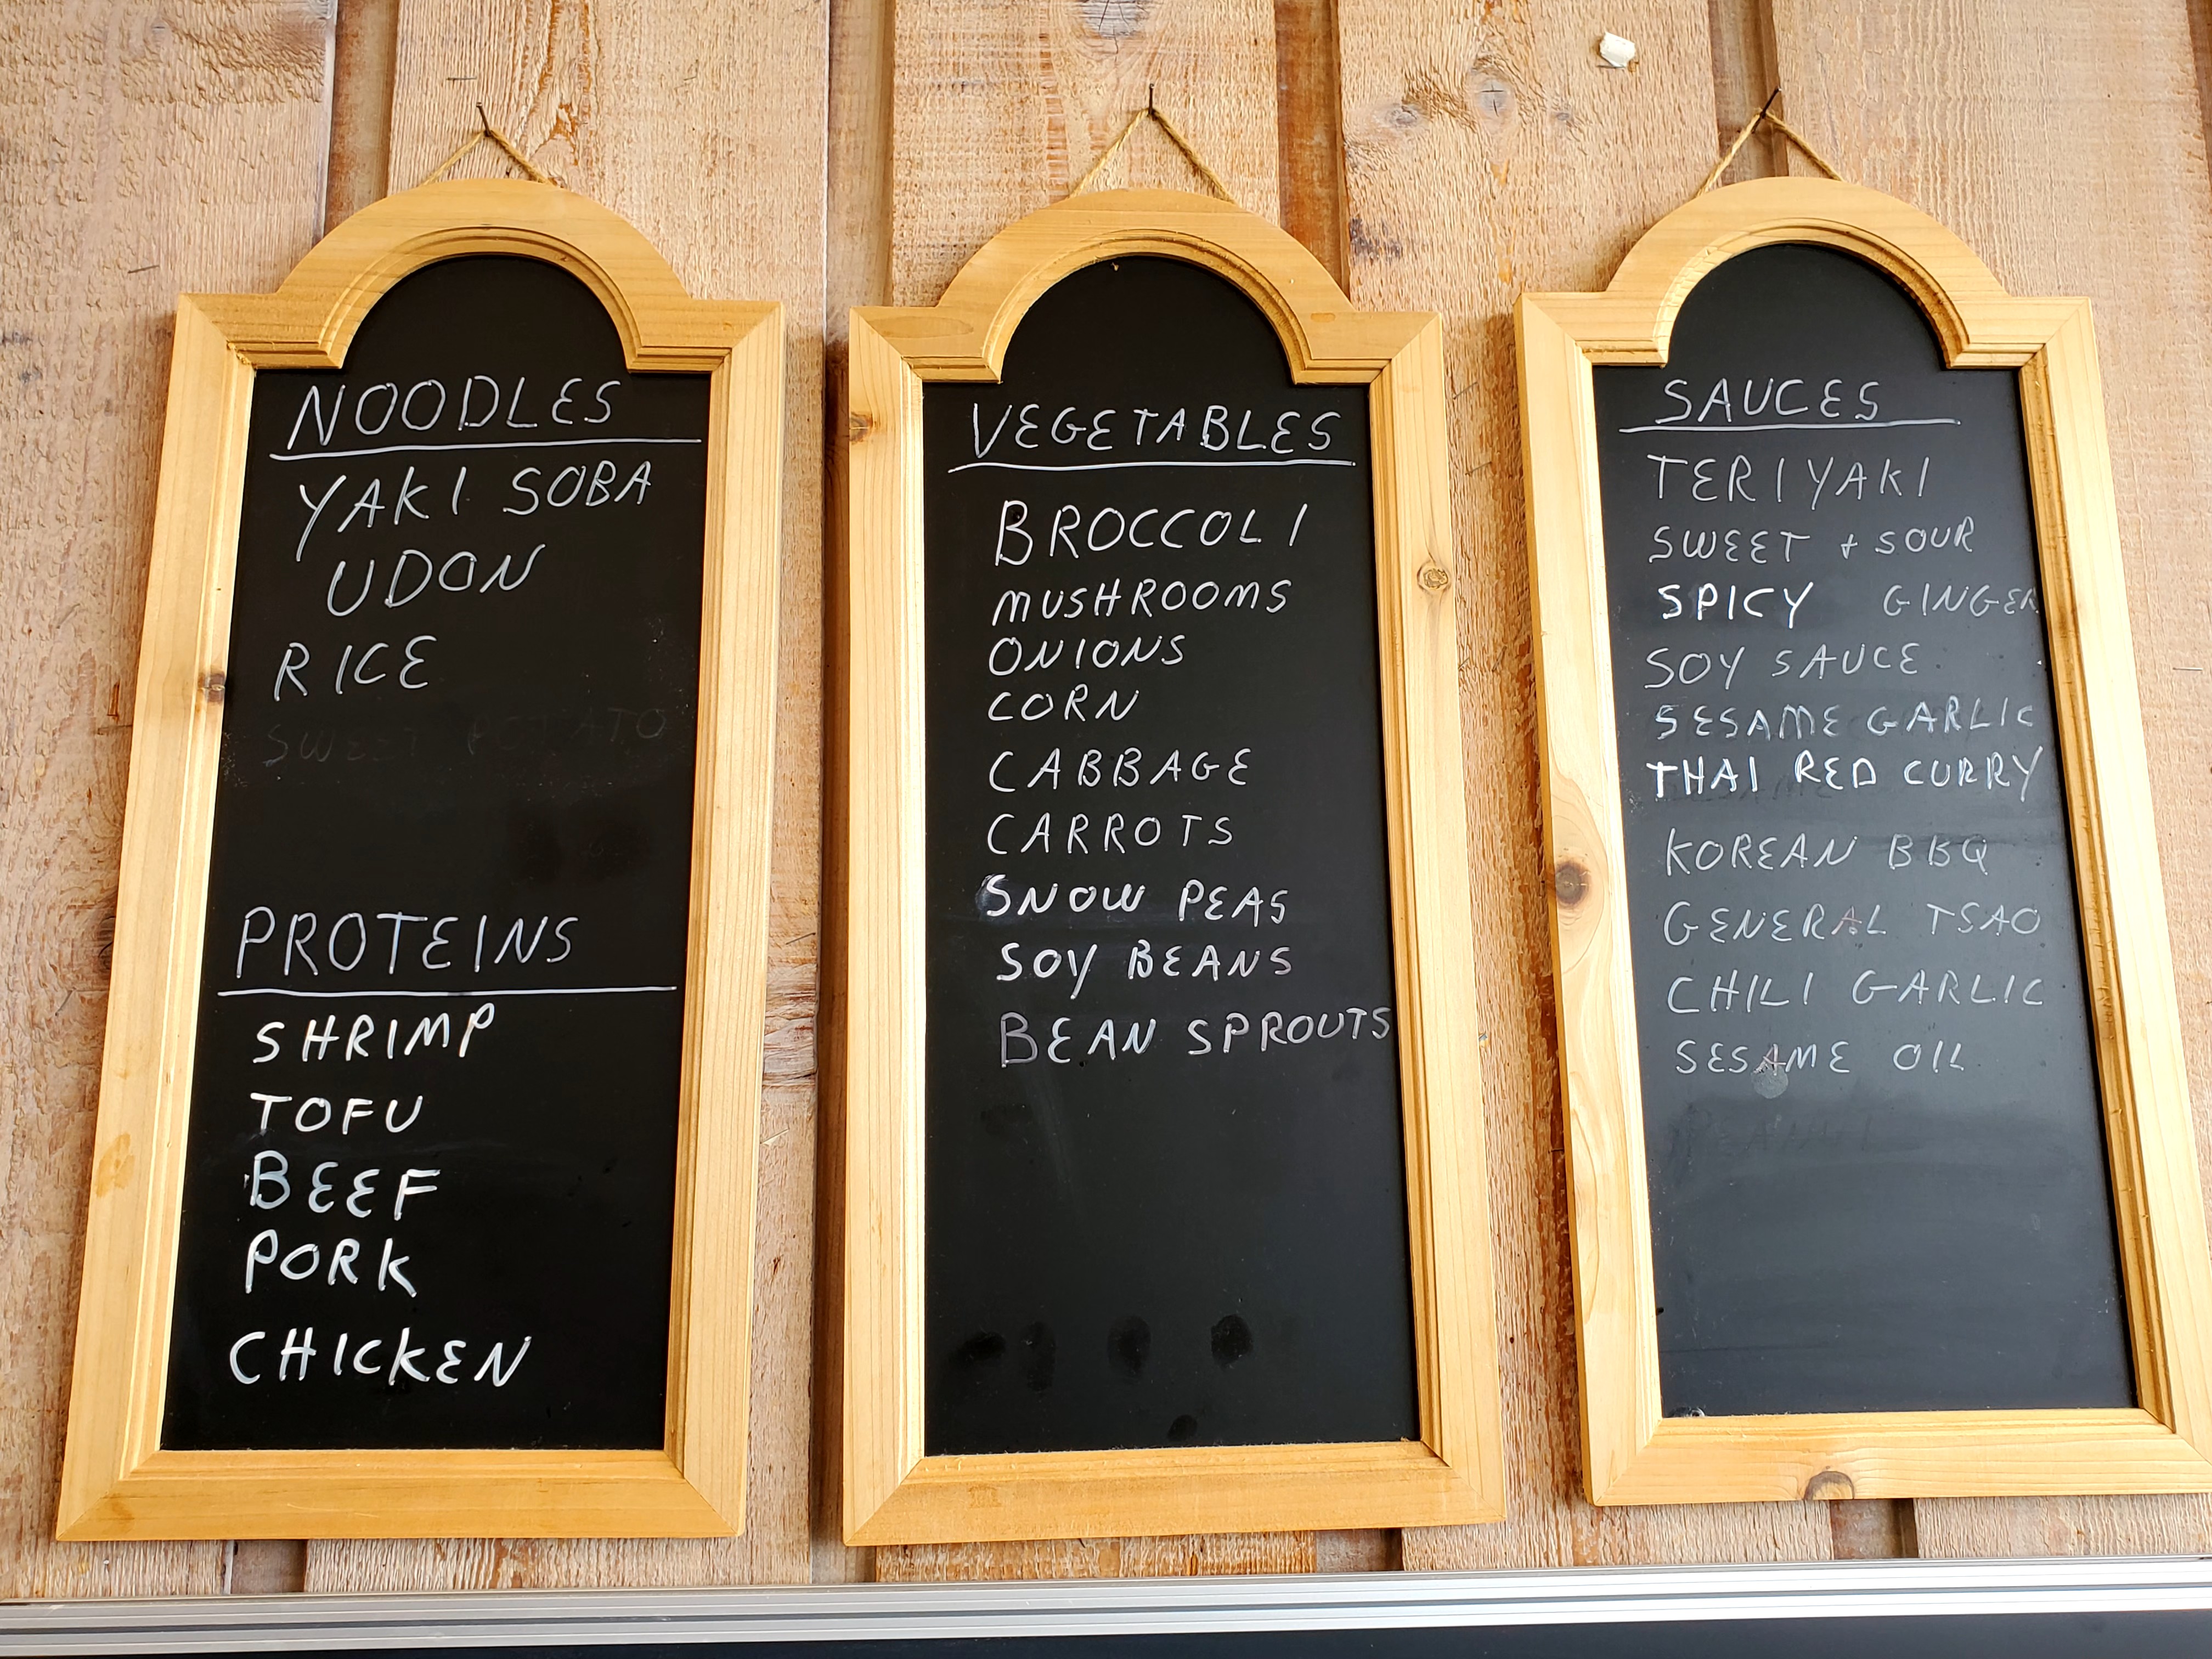 NOODLES
YAKI SOBA
UDON
RICE
SWEET POTATO
PROTEINS
SHRIMP
TOFU
BEEF
PORK
CHICKEN
VEGETABLES
BROCCOLI
MUSHROOMS
ONIONS
CORN
CABBAGE
CARROTS
SNOW PEAS
SOY BEANS
BEAN SPROUTS
SAUCES
TERIYAKI
SWEET + SOUR
SPICY GINGER
SOY SAUCE
SESAME GARLIC
THAI RED CURRY
KOREAN BBQ
GENERAL TSAO
CHILI GARLIC
SESAME OIL